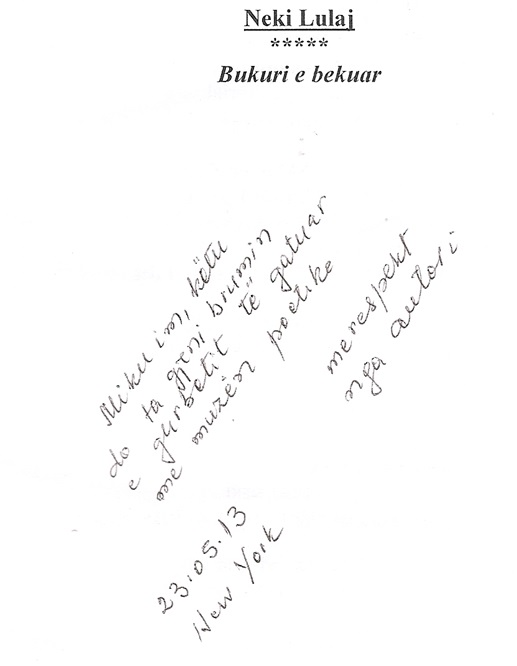 Neki Lulaj
*****
Bukuri e bekuar
Miku im, këtu
do ta gjeni brumin
e gurbetit të gatuar
me muzën poetike
me respekt
nga autori
23.05.13
New York